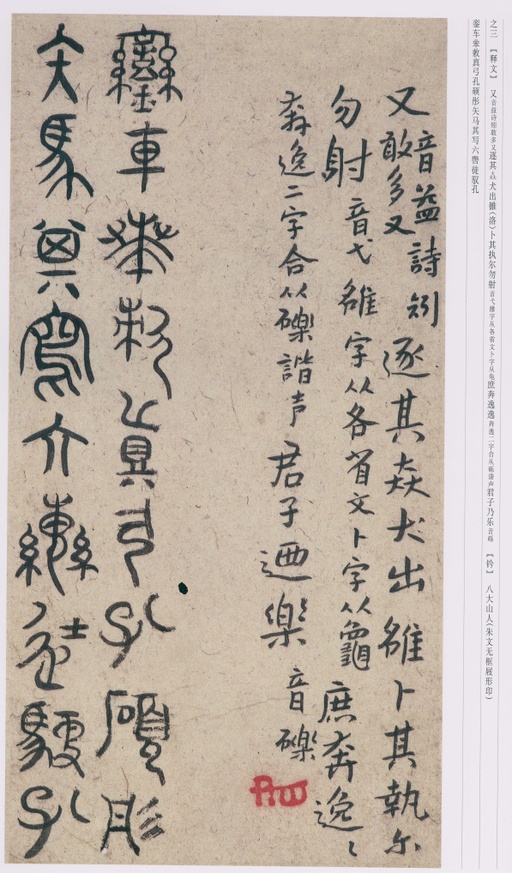 之三 【释文】 又音益诗矧敢多又逐其猋犬出雒(洛)卜其执尔勿射音弋雒字从各省文卜字从龟庶奔逸逸奔逸二字合从砾谐声君子乃乐音砾 【钤】 八大山人(朱文无框屐形印)
銮车柬敕真弓孔硕彤矢马其写六辔徒驭孔
又音益詩矧敢多又逐其猋犬出雒卜其執尔
勿射音弋雒字从各省文卜字从龜庶奔逸〻
奔逸二字合从礫諧声君子迺樂音礫
鑾車𠦪敕真弓孔碩彤
矢馬其寫六轡徒馭孔